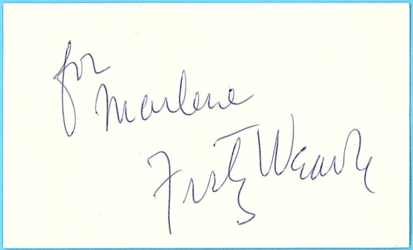 for
Marlene
Fritz Weaver